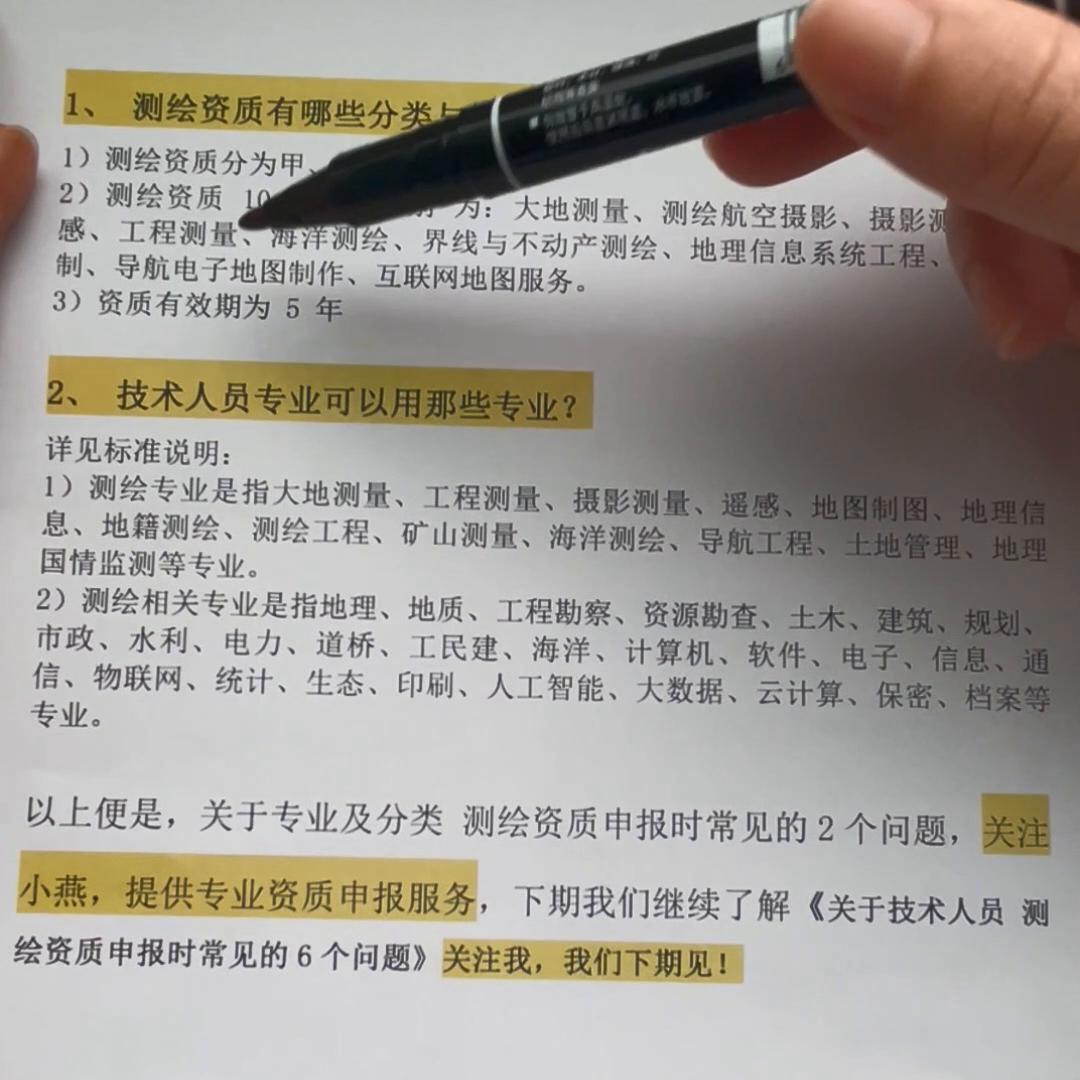 1、 测绘资质有哪些分类与
1）测绘资质分为甲、
2）测绘资质 10 为：大地测量、测绘航空摄影、摄影测
感、工程测量、海洋测绘、界线与不动产测绘、地理信息系统工程、
制、导航电子地图制作、互联网地图服务。
3）资质有效期为 5 年
2、 技术人员专业可以用那些专业？
详见标准说明：
1）测绘专业是指大地测量、工程测量、摄影测量、遥感、地图制图、地理信
息、地籍测绘、测绘工程、矿山测量、海洋测绘、导航工程、土地管理、地理
国情监测等专业。
2）测绘相关专业是指地理、地质、工程勘察、资源勘查、土木、建筑、规划、
市政、水利、电力、道桥、工民建、海洋、计算机、软件、电子、信息、通
信、物联网、统计、生态、印刷、人工智能、大数据、云计算、保密、档案等
专业。
以上便是，关于专业及分类 测绘资质申报时常见的 2 个问题，关注
小燕，提供专业资质申报服务，下期我们继续了解《关于技术人员 测
绘资质申报时常见的 6 个问题》关注我，我们下期见！